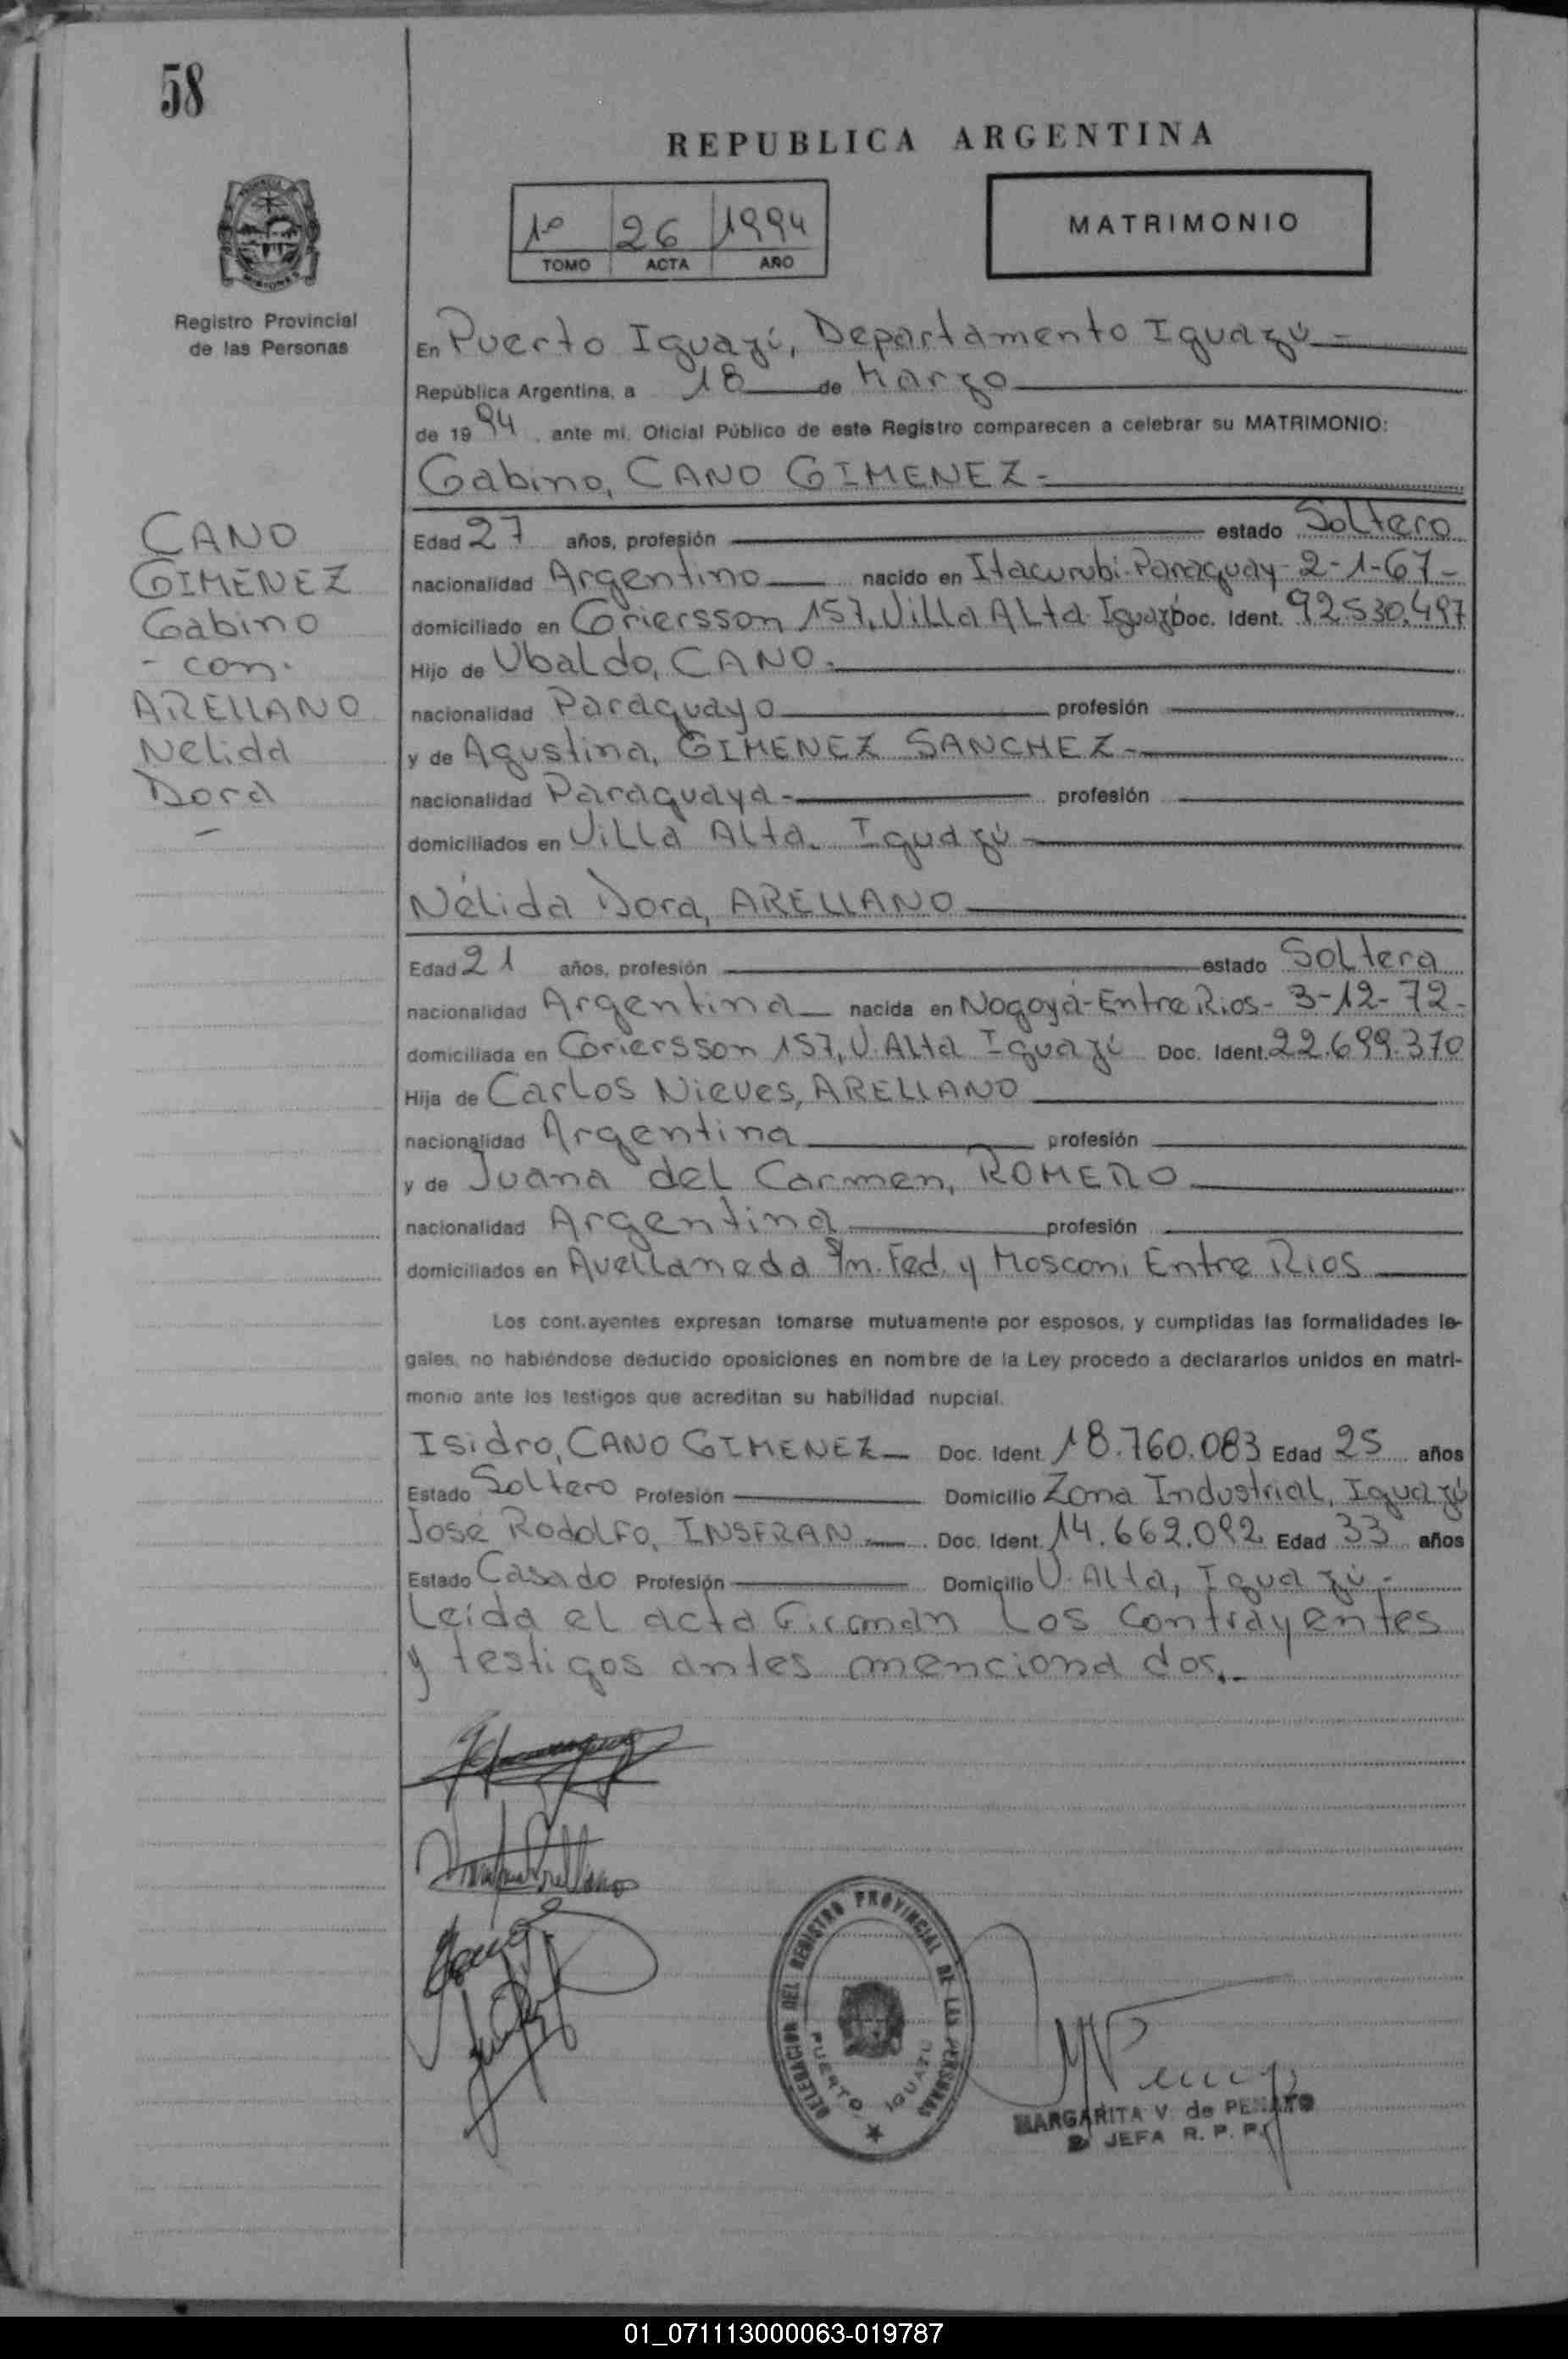 58
REPUBLICA ARGENTINA
1º 26 1994
TOMO ACTA AÑO
MATRIMONIO
Registro Provincial
de las Personas
CANO
GIMENEZ
Gabino
- con -
ARELLANO
Nelida
Dora
En Puerto Iguazú, Departamento Iguazú
República Argentina, a 18 de Marzo
de 1994, ante mi, Oficial Público de este Registro comparecen a celebrar su MATRIMONIO:
Gabino, CANO GIMENEZ -
Edad 27 años, profesión estado Soltero
nacionalidad Argentino nacido en Itacurubi-Paraguay-2-1-67-
domiciliado en Griersson 157, Villa Alta-Iguazú Doc. Ident. 92.530.497
Hijo de Ubaldo, CANO.
nacionalidad Paraguayo profesión
y de Agustina, GIMENEZ SANCHEZ -
nacionalidad Paraguaya - profesión
domiciliados en Villa Alta. Iguazú
Nélida Dora, ARELLANO
Edad 21 años, profesión estado Soltera
nacionalidad Argentina nacida en Nogoyá-Entre Rios- 3-12-72-
domiciliada en Griersson 157, V. Alta Iguazú Doc. Ident. 22.699.370
Hija de Carlos Nieves, ARELLANO
nacionalidad Argentina profesión
y de Juana del Carmen, ROMERO
nacionalidad Argentina profesión
domiciliados en Avellaneda S/n. Fed. y Mosconi Entre Rios
Los cont.ayentes expresan tomarse mutuamente por esposos, y cumplidas las formalidades le-
gales, no habiéndose deducido oposiciones en nombre de la Ley procedo a declararlos unidos en matri-
monio ante los testigos que acreditan su habilidad nupcial.
Isidro, CANO GIMENEZ Doc. Ident. 18.760.083 Edad 25 años
Estado Soltero Profesión Domicilio Zona Industrial, Iguazú
José Rodolfo, INSFRAN Doc. Ident. 14.662.092 Edad 33 años
Estado Casado Profesión Domicilio V. Alta, Iguazú -
Leída el acta Firman los contrayentes
y testigos antes mencionados.-
DELEGACION DEL REGISTRO PROVINCIAL DE LAS PERSONAS
PUERTO IGUAZU
MARGARITA V. de PENAYO
JEFA R. P. P.
01_071113000063-019787